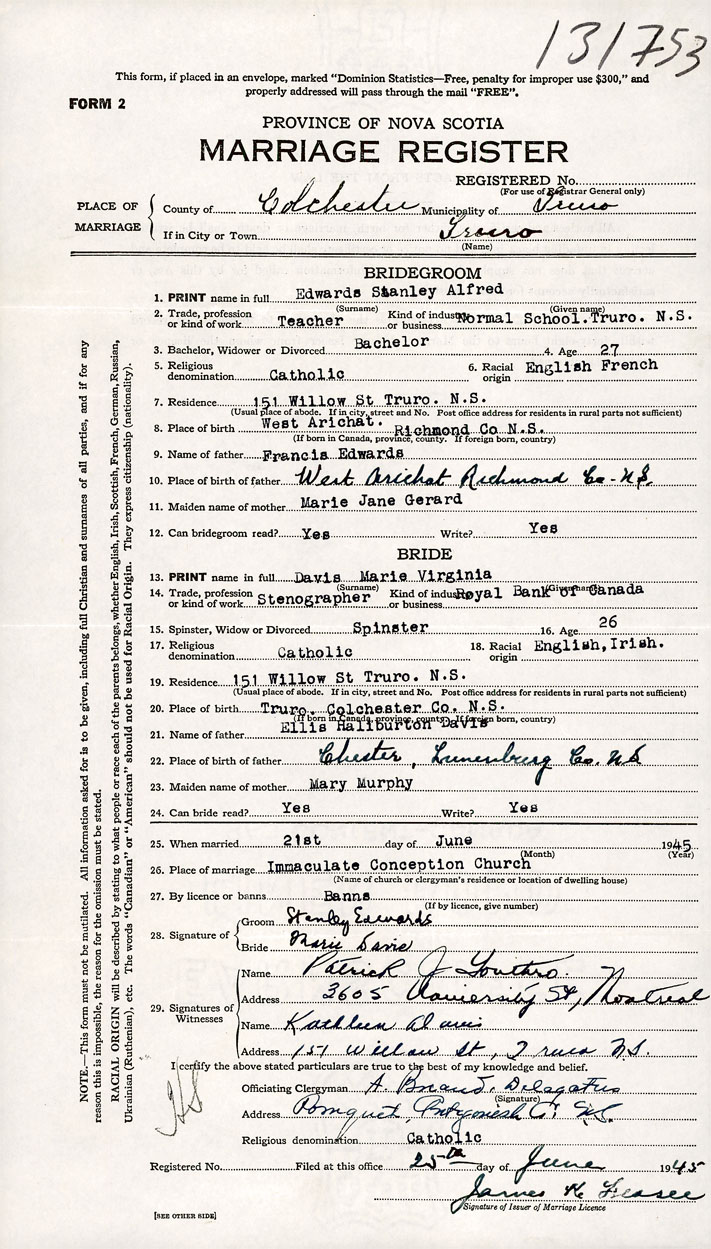 131753
This form, if placed in an envelope, marked “Dominion Statistics—Free, penalty for improper use $300,” and
properly addressed will pass through the mail “FREE”.
FORM 2
PROVINCE OF NOVA SCOTIA
MARRIAGE REGISTER
REGISTERED No.
(For use of Registrar General only)
PLACE OF MARRIAGE
County of Colchester Municipality of Truro
If in City or Town Truro
(Name)
BRIDEGROOM
1. PRINT name in full Edwards Stanley Alfred
(Surname) (Given name)
2. Trade, profession or kind of work Teacher Kind of industry or business Normal School.Truro. N.S.
3. Bachelor, Widower or Divorced Bachelor 4. Age 27
5. Religious denomination Catholic 6. Racial origin English French
7. Residence 151 Willow St Truro. N.S.
(Usual place of abode. If in city, street and No. Post office address for residents in rural parts not sufficient)
8. Place of birth West Arichat. Richmond Co N.S.
(If born in Canada, province, county. If foreign born, country)
9. Name of father Francis Edwards
10. Place of birth of father West Arichat Richmond Co-N.S.
11. Maiden name of mother Marie Jane Gerard
12. Can bridegroom read? Yes Write? Yes
BRIDE
13. PRINT name in full Davis Marie Virginia
(Surname) (Given name)
14. Trade, profession or kind of work Stenographer Kind of industry or business Royal Bank of Canada
15. Spinster, Widow or Divorced Spinster 16. Age 26
17. Religious denomination Catholic 18. Racial origin English,Irish.
19. Residence 151 Willow St Truro. N.S.
(Usual place of abode. If in city, street and No. Post office address for residents in rural parts not sufficient)
20. Place of birth Truro. Colchester Co. N.S.
(If born in Canada, province, county. If foreign born, country)
21. Name of father Ellis Haliburton Davis
22. Place of birth of father Chester, Lunenburg Co. N.S
23. Maiden name of mother Mary Murphy
24. Can bride read? Yes Write? Yes
25. When married 21st day of June 1945
(Month) (Year)
26. Place of marriage Immaculate Conception Church
(Name of church or clergyman’s residence or location of dwelling house)
27. By licence or banns Banns
(If by licence, give number)
28. Signature of
Groom Stanley Edwards
Bride Marie Davis
29. Signatures of Witnesses
Name Patrick J
Address 3605 University St, Montreal
Name Kathleen Davis
Address 151 Willow St, Truro N.S.
I certify the above stated particulars are true to the best of my knowledge and belief.
Officiating Clergyman A. Briand. Delegatus
(Signature)
Address Pomquet, Antigonish Co. N.S.
Religious denomination Catholic
Registered No. Filed at this office 25th day of June 1945
James K
Signature of Issuer of Marriage Licence
[SEE OTHER SIDE]
NOTE.—This form must not be mutilated. All information asked for is to be given, including full Christian and surnames of all parties, and if for any
reason this is impossible, the reason for the omission must be stated.
RACIAL ORIGIN will be described by stating to what people or race each of the parents belongs, whether English, Irish, Scottish, French, German, Russian,
Ukrainian (Ruthenian), etc. The words “Canadian” or “American” should not be used for Racial Origin. They express citizenship (nationality).